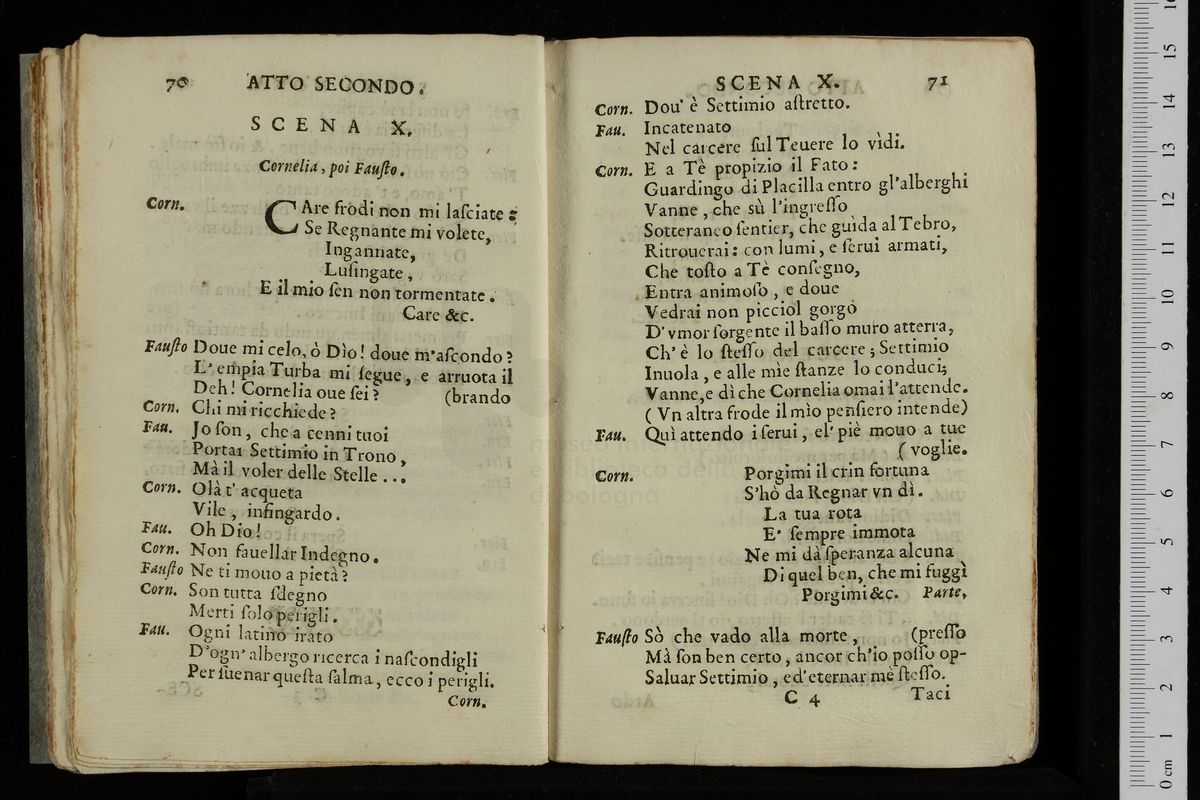 70 ATTO SECONDO.
SCENA X.
Cornelia, poi Fauſto.
Corn. CAre frodi non mi laſciate:
Se Regnante mi volete,
Ingannate,
Luſingate,
E il mio ſen non tormentate.
Care &c.
Fauſto Doue mi celo, ò Dìo! doue m'aſcondo?
L'empia Turba mi ſegue, e arruota il
Deh! Cornelia oue ſei? (brando
Corn. Chi mi ricchiede?
Fau. Jo ſon, che a cenni tuoi
Portai Settimio in Trono,
Mà il voler delle Stelle...
Corn. Olà t'acqueta
Vile, infingardo.
Fau. Oh Dio!
Corn. Non fauellar Indegno.
Fauſto Ne ti mouo a pietà?
Corn. Son tutta ſdegno
Merti ſolo perigli.
Fau. Ogni latino irato
D'ogn'albergo ricerca i naſcondigli
Per ſuenar queſta ſalma, ecco i perigli.
Corn.
SCENA X. 71
Corn. Dou' è Settimio aſtretto.
Fau. Incatenato
Nel carcere ſul Teuere lo vidi.
Corn. E a Tè propizio il Fato:
Guardingo di Placilla entro gl'alberghi
Vanne, che sù l'ingreſſo
Sotteraneo ſentier, che guida al Tebro,
Ritrouerai: con lumi, e ſerui armati,
Che toſto a Tè conſegno,
Entra animoſo, e doue
Vedrai non picciol gorgo
D'vmor ſorgente il baſſo muro atterra,
Ch' è lo ſteſſo del carcere; Settimio
Inuola, e alle mie ſtanze lo conduci;
Vanne, e dì che Cornelia omai l'attende.
(Vn altra frode il mìo penſiero intende)
Fau. Quì attendo i ſerui, el' piè mouo a tue
(voglie.
Corn. Porgimi il crin fortuna
S'hò da Regnar vn dì.
La tua rota
E' ſempre immota
Ne mi dà ſperanza alcuna
Di quel ben, che mi fuggì
Porgimi &c. Parte,
Fauſto Sò che vado alla morte, (preſſo
Mà ſon ben certo, ancor ch'io poſſo op-
Saluar Settimio, ed'eternar me ſteſſo.
C 4 Taci